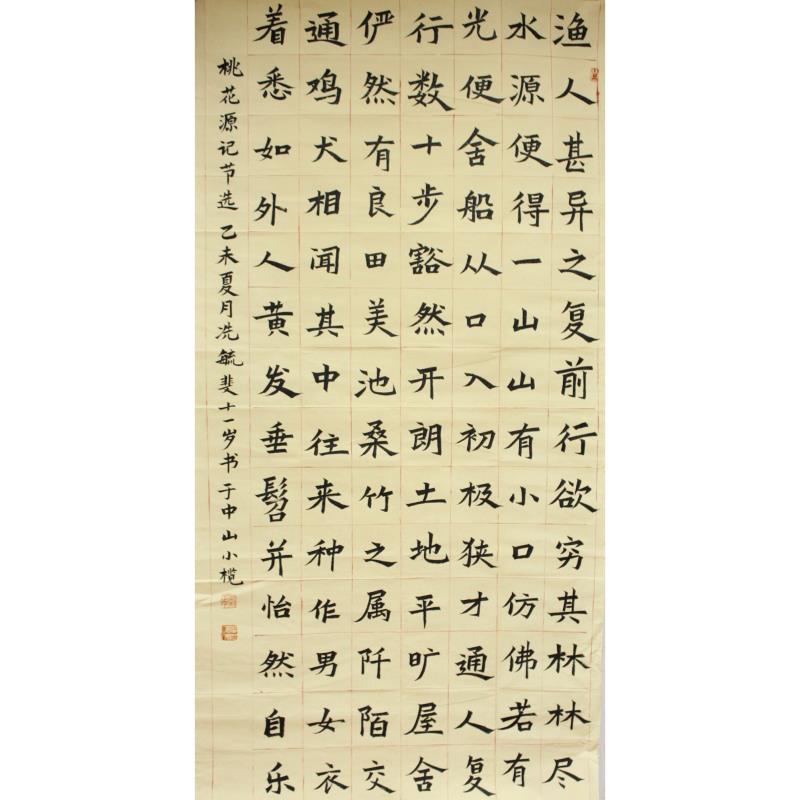 渔人甚异之复前行欲穷其林林尽
水源便得一山山有小口仿佛若有
光便舍船从口入初极狭才通人复
行数十步豁然开朗土地平旷屋舍
俨然有良田美池桑竹之属阡陌交
通鸡犬相闻其中往来种作男女衣
着悉如外人黄发垂髫并怡然自乐
桃花源记节选乙未夏月冼毓斐十一岁书于中山小榄